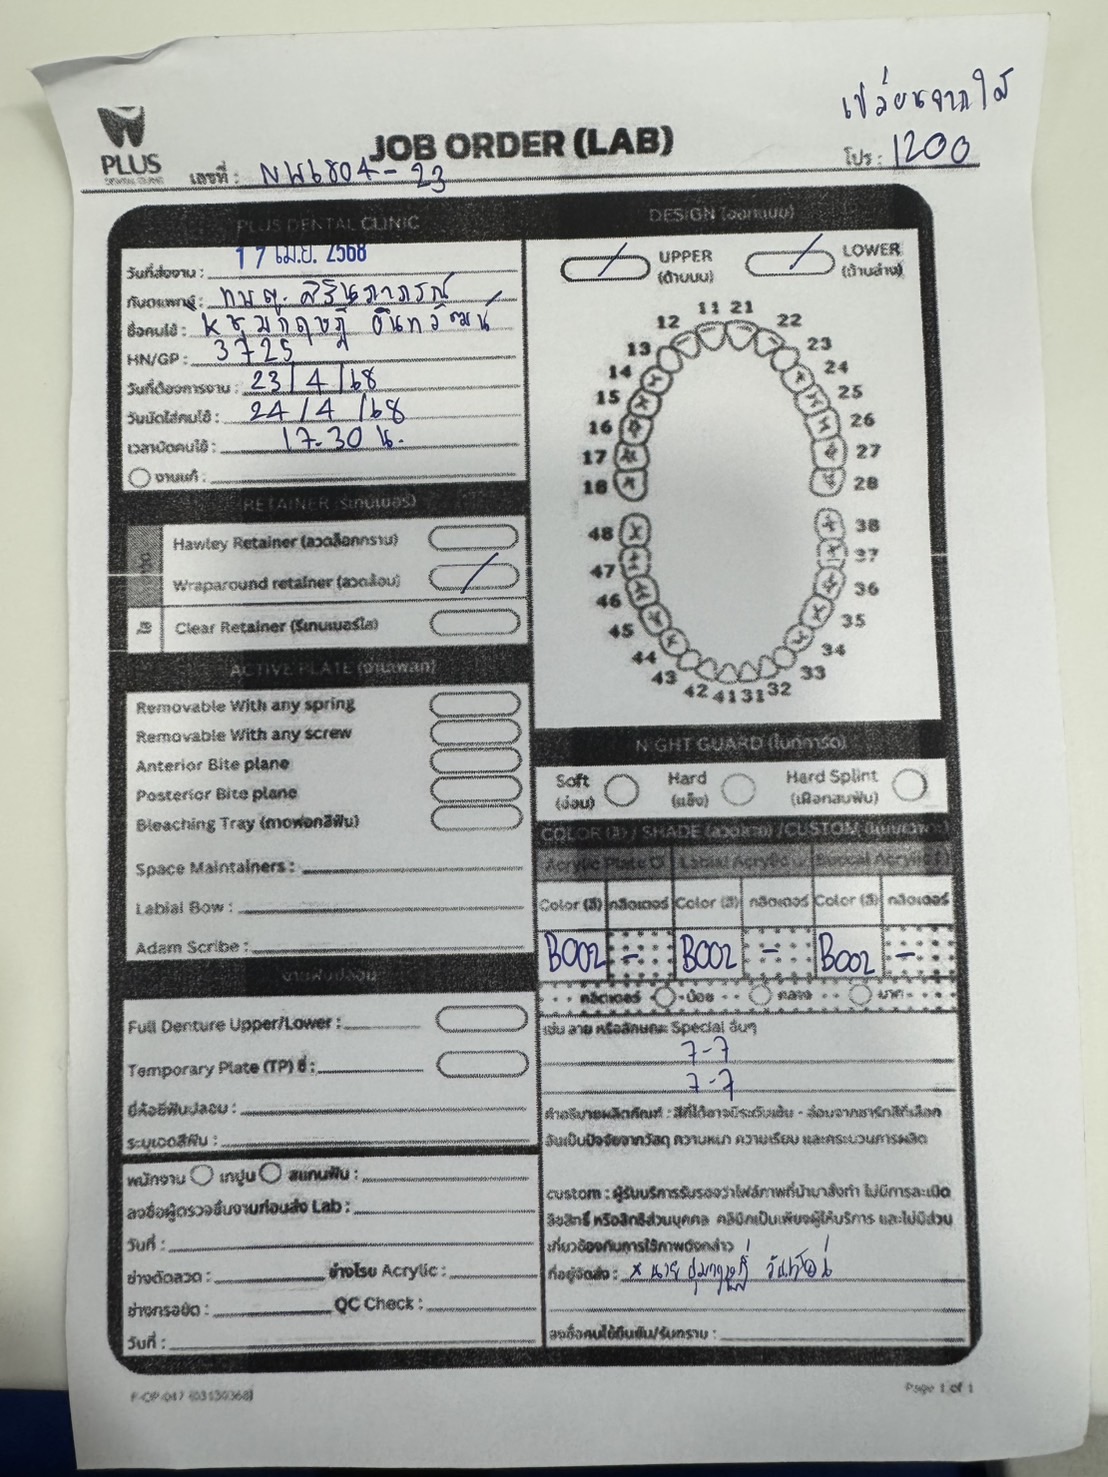 เปลี่ยนจากใส
PLUS
DENTAL CLINIC
JOB ORDER (LAB)
โปร : 1200
เลขที่ : NW6804-23
PLUS DENTAL CLINIC
วันที่ส่งงาน : 17 เม.ย. 2568
ทันตแพทย์ : ทพญ. สิรินภาภรณ์
ชื่อคนไข้ :
HN/GP : 3725
วันที่ต้องการงาน : 23/4/68
วันนัดใส่คนไข้ : 24/4/68
เวลานัดคนไข้ : 17.30 น.
งานแก้ :
RETAINER (รีเทนเนอร์)
Hawley Retainer (ลวดล็อกกราม)
Wraparound retainer (ลวดล้อม)
Clear Retainer (รีเทนเนอร์ใส)
ACTIVE PLATE (งานเพลท)
Removable With any spring
Removable With any screw
Anterior Bite plane
Posterior Bite plane
Bleaching Tray (ถาดฟอกสีฟัน)
Space Maintainers :
Labial Bow :
Adam Scribe :
งานฟันปลอม
Full Denture Upper/Lower :
Temporary Plate (TP) ซี่ :
ยี่ห้อซี่ฟันปลอม :
ระบุเฉดสีฟัน :
พนักงาน เทปูน สแกนฟัน :
ลงชื่อผู้ตรวจชิ้นงานก่อนส่ง Lab :
วันที่ :
ช่างดัดลวด : ช่างโรย Acrylic :
ช่างกรอขัด : QC Check :
วันที่ :
DESIGN (ออกแบบ)
UPPER
(ด้านบน)
LOWER
(ด้านล่าง)
11 21
12 22
13 23
14 24
15 25
16 26
17 27
18 28
48 38
47 37
46 36
45 35
44 34
43 33
42 41 31 32
NIGHT GUARD (ไนท์การ์ด)
Soft
(อ่อน)
Hard
(แข็ง)
Hard Splint
(เฝือกสบฟัน)
COLOR (สี) / SHADE (ลวดลาย) /CUSTOM (แบบเฉพาะ)
Acrylic Plate Labial Acrylic Buccal Acrylic
Color (สี) กลิตเตอร์ Color (สี) กลิตเตอร์ Color (สี) กลิตเตอร์
B002 - B002 - B002 -
กลิตเตอร์ น้อย กลาง มาก
เช่น ลาย หรือลักษณะ Special อื่นๆ
7-7
7-7
คำอธิบายผลิตภัณฑ์ : สีที่ได้อาจมีระดับเข้ม - อ่อนจากชาร์ทสีที่เลือก
อันเป็นปัจจัยจากวัสดุ ความหนา ความเรียบ และกระบวนการผลิต
custom : ผู้รับบริการรับรองว่าไฟล์ภาพที่นำมาสั่งทำ ไม่มีการละเมิด
ลิขสิทธิ์ หรือสิทธิส่วนบุคคล คลินิกเป็นเพียงผู้ให้บริการ และไม่มีส่วน
เกี่ยวข้องกับการใช้ภาพดังกล่าว
ที่อยู่จัดส่ง : x นาย
ลงชื่อคนไข้ยืนยัน/รับทราบ :
F-OP-047 (03130368)
Page 1 of 1